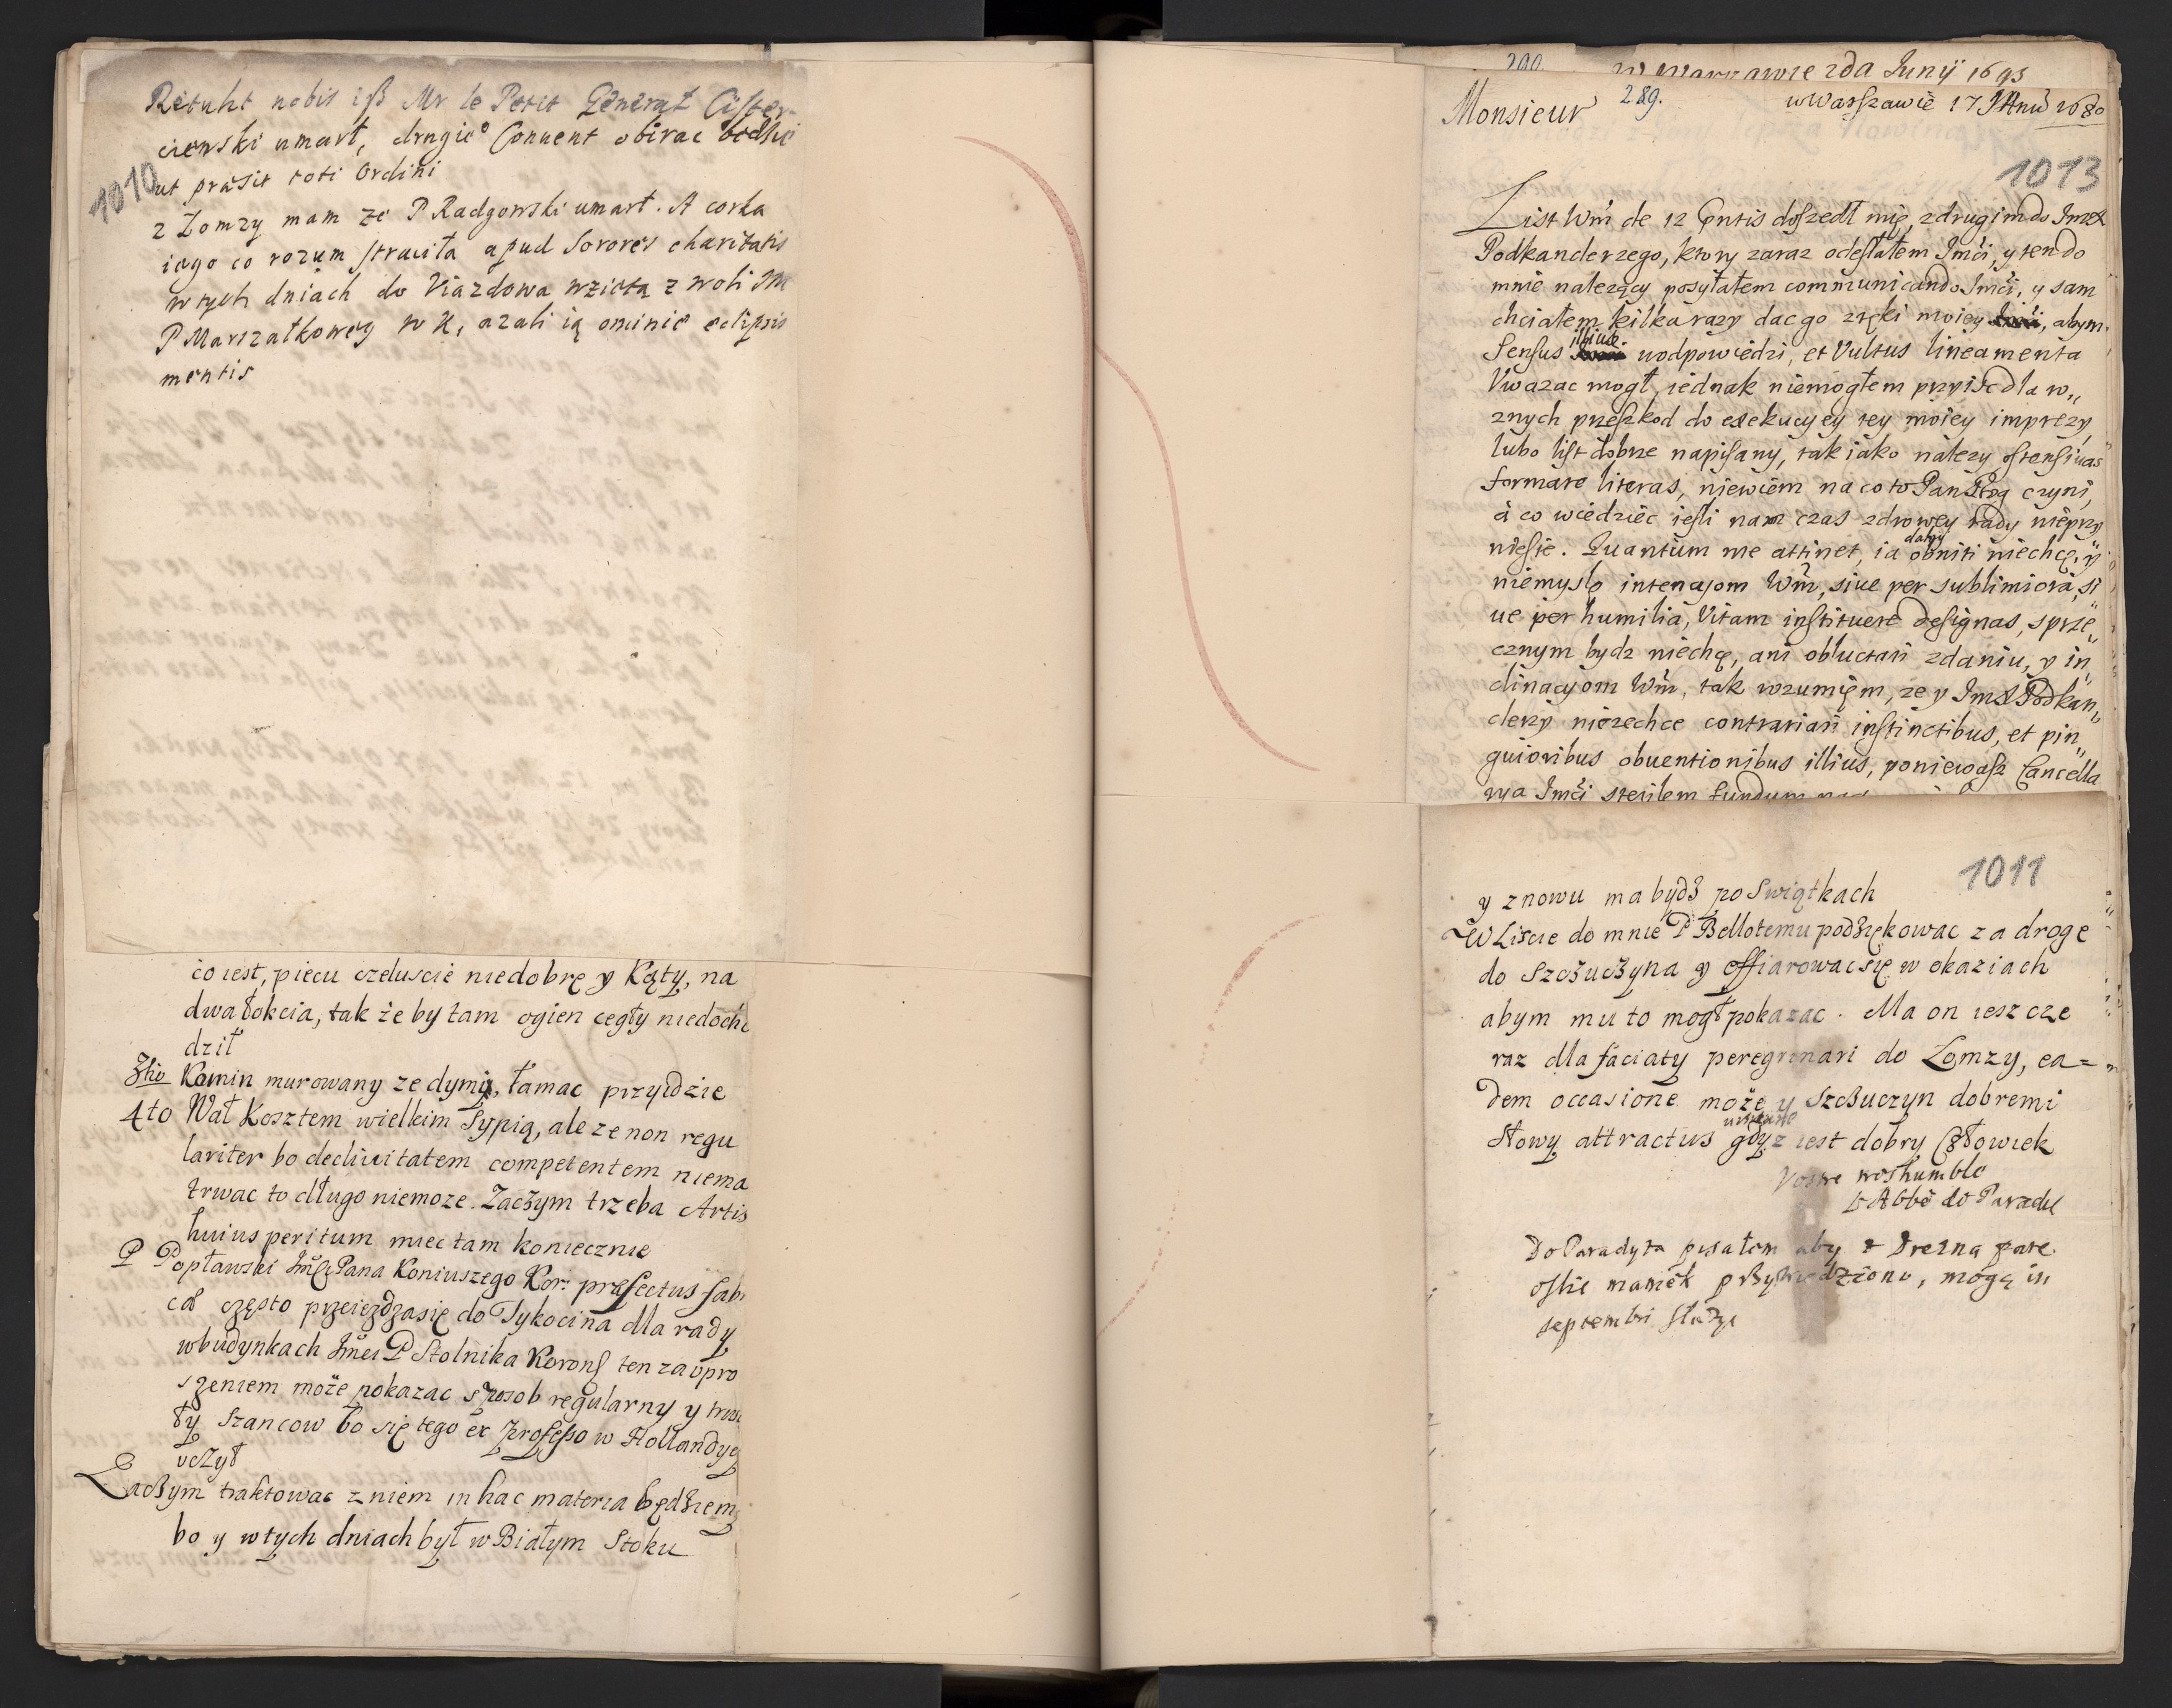 Retulit nobis iß Mr le Petit General Cister-
cienski umarł, drugie° Conuent obirac bedzie
1010
ut præsit toti Ordini
z Lomzy mam ze P Radgowski umarł. A corka
iego co rozum straciła apud Sorores charitatis
w tych dniach do Viazdowa wzięta z woli Im
P Marszałkowey W X, azali ią ominie eclipsis
mentis
co iest, piecu czeluscie niedobrę y Kąty, na
dwa łokcia, tak że by tam ogien cegły niedocho
dził
3tio Komin murowany ze dymi, łamac przyidzie
4to Wał Kosztem wielkim Sypią, ale ze non regu
lariter bo decliuitatem competentem niema
trwac to długo niemoze. Zaczym trzeba Artis
huius peritum miec tam koniecznie
P Popławski Jmci Pana Koniuszego Kor: præfectus fabri
często przeiezdza się do Tykocina dla rady
w budynkach Jmci P Stolnika Korong ten za upro
szeniem może pokazac sposob regularny y trwa
ły Szancow bo się tego ex professo w Hollandyey
uczył
Zaczym traktowac z niem in hac materia będziemy
bo y w tych dniach był w Białym Stoku
290. w Warszawie 2da Junÿ 1693
Monsieur 289. w Warszawie 17 1680
1013
List Wm de 12 pntis doszedł mię, z drugim do Jmx
Podkanclerzego, ktory zaraz odesłałem Jmci, y ten do
mnie nalezący posyłałem communicando Jmci, y sam
chciałem kilka razy dac go z ręki moiey, abym
Sensus illius u odpowiedzi, et Vultus lineamenta
Vwazac mogł, iednak niemogłem przyisc dla ro„
znych przeszkod do exekucyey tey moiey imprezy,
lubo list dobrze napisany, tak iako nalezy ostensiuas
formare literas, niewiem na co to Pan Bog czyni,
à co wiedziec iesli nam czas zdrowey rady nieprzy
niesie. Quantum me attinet, ia daley obniti niechcę, ÿ
niemyslę intencyom Wm, siue per sublimiora, si
ue per humilia, Vitam instituere designas, sprze„
cznym bydz niechę, ani obluctari zdaniu, y in
clinacyom Wm, tak rozumięm, ze y Jmx Podkan„
clerzy niezechce contrariari instinctibus, et pin„
guioribus obuentionibus illius, poniewasz Cancella
rya Jmci sterilem fundum
1011
y znowu ma bydz po Swiątkach
W Liscie do mnie P Bellotemu podziękowac za drogę
do Szczuczyna y offiarowac się w okaziach
abym mu to mogł pokazac. Ma on ieszcze
raz dla faciaty peregrinari do Lomzy, ea=
dem occasione może y Szczuczyn dobremi
Słowy attractus gdyz iest dobry Człowiek
Vostre treshumble
L Abbé de Paradis
Do Paradyza pisałem aby z Drezna
in
septembri